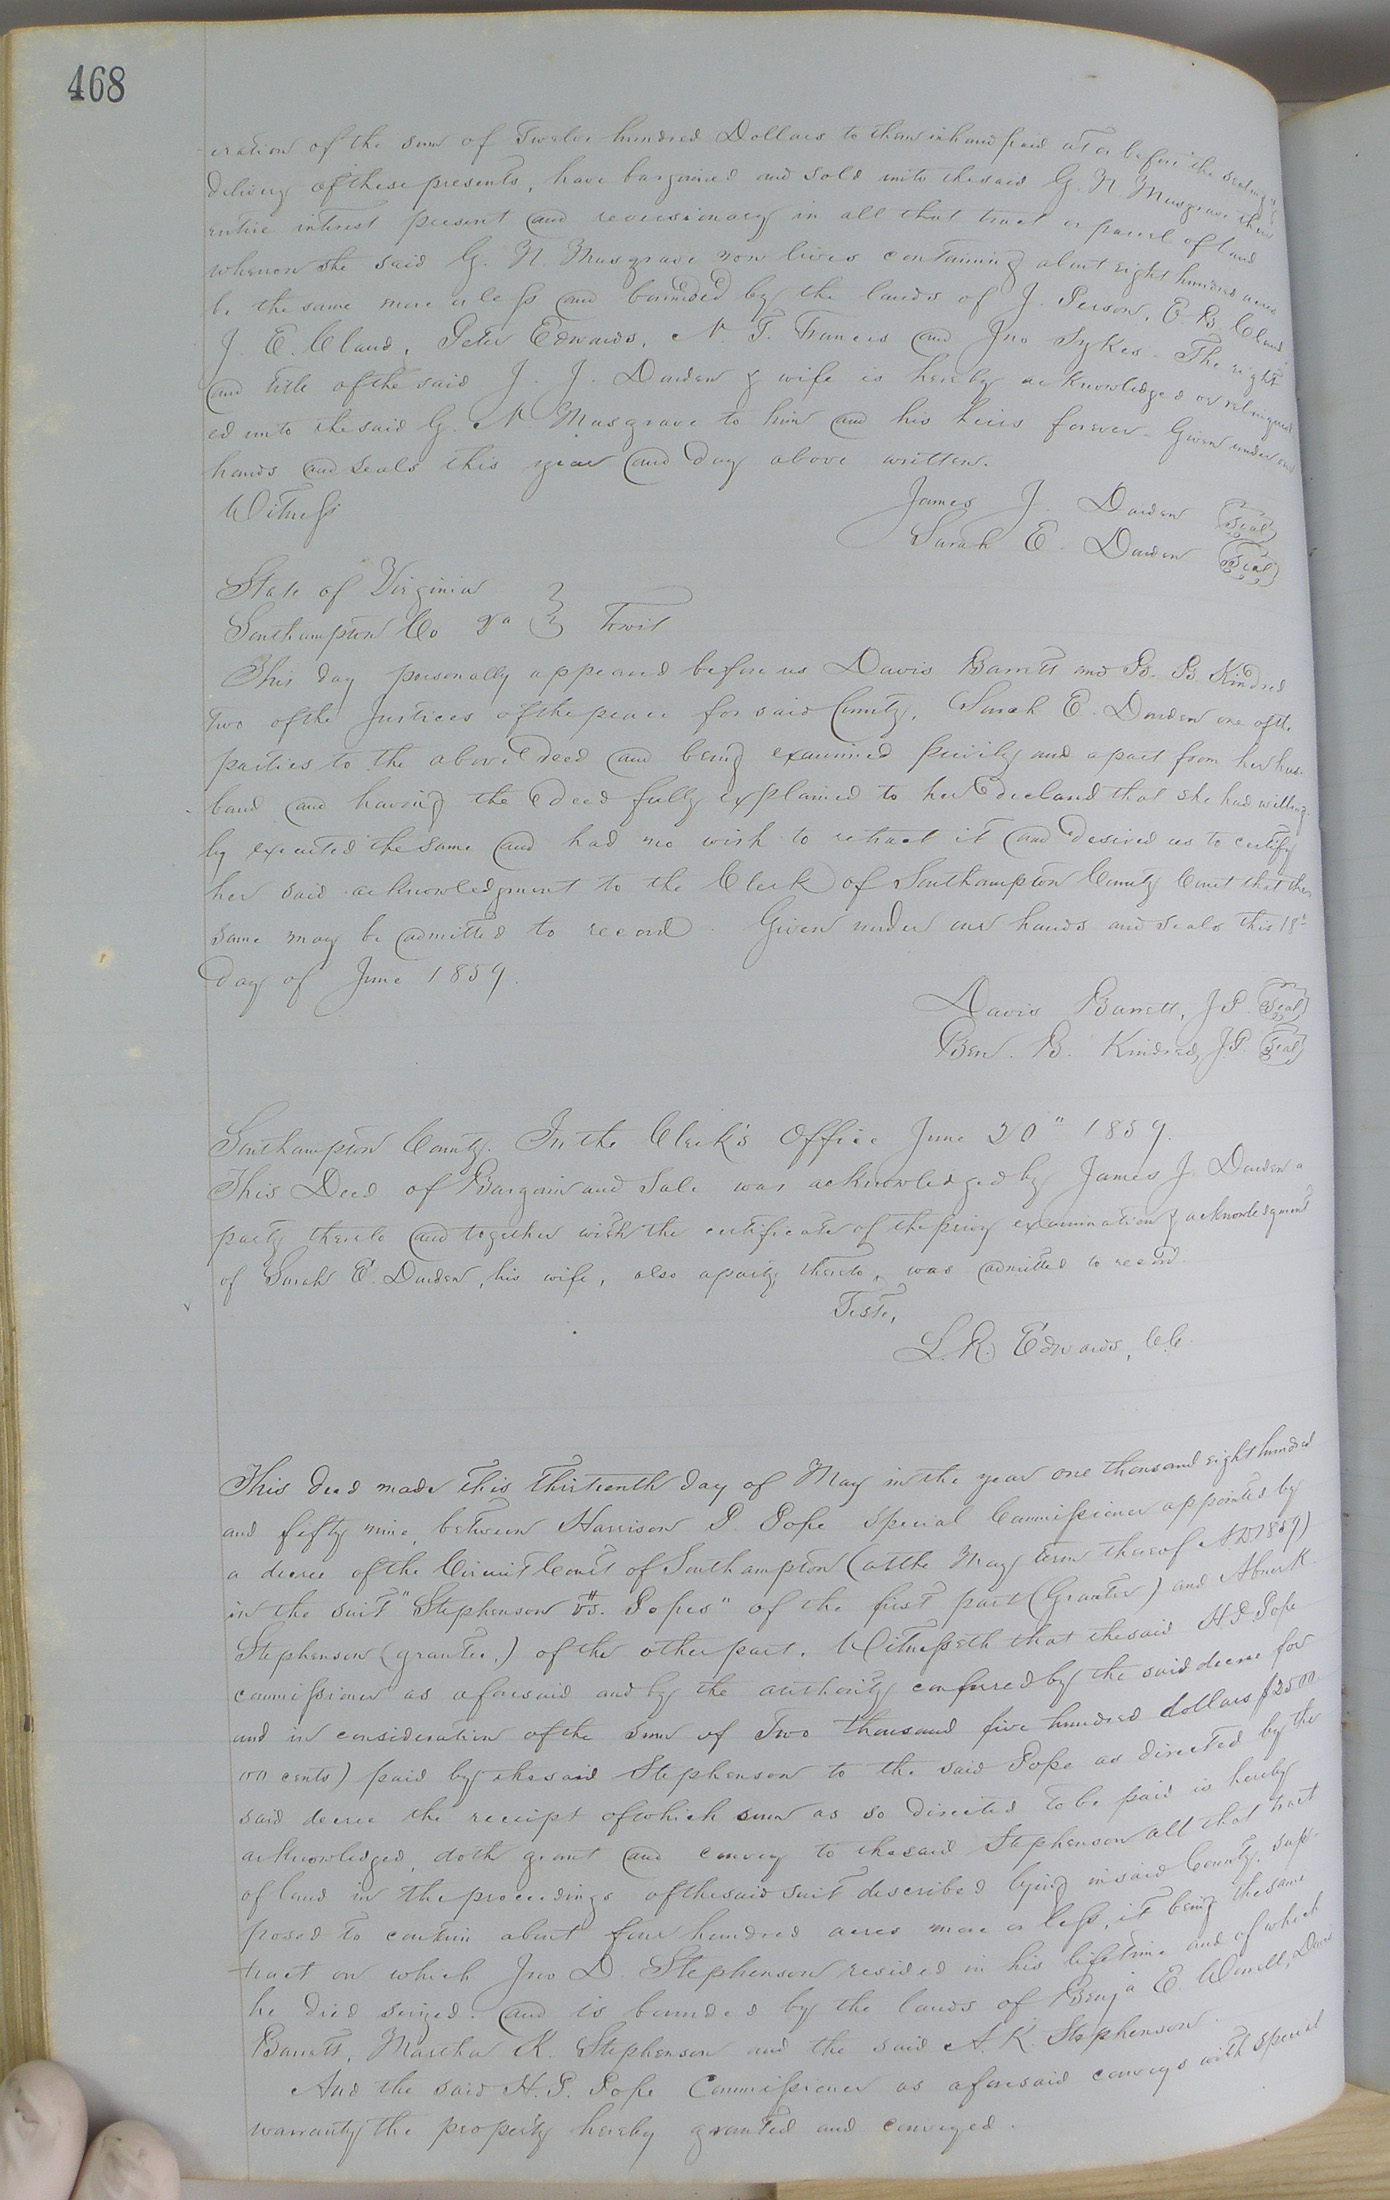 468
eration of the sum of Twelve hundred Dollars to them in hand paid at or before the sealing &
delivery of these presents, have bargained and sold unto the said G. N. Musgrave their
entire interest present and reversionary in all that tract or parcel of land
whereon the said G. N. Musgrave now lives containing about eight hundred acres
be the same more or less and bounded by the lands of J. Person, E. B. Claud
J. E. Claud, Peter Edwards, N. T. Francis and Jno Sykes. The right
and title of the said J. J. Darden & wife is hereby acknowledged or relinquish
ed unto the said G. N Musgrave to him and his heirs forever. Given under our
hands and seals this year and day above written.
Witness
James J. Darden Seal
Sarah E. Darden Seal
State of Virginia
Southampton Co Va Towit
This day personally appeared before us Davis Barrett and B. B. Kindred
two of the Justices of the peace for said County, Sarah E. Darden one of the
parties to the above deed and being examined privily and apart from her hus-
band and having the deed fully explained to her declared that she had willing-
ly executed the same and had no wish to retract it and desired us to certify
her said acknowledgment to the Clerk of Southampton County Court that the
same may be admitted to record. Given under our hands and seals this 18t
day of June 1859.
Davis Barrett, J.P. Seal
Ben. B. Kindred, J.P. Seal
Southampton County. In the Clerk's Office June 20" 1859.
This Deed of Bargain and Sale was acknowledged by James J. Darden a
party thereto and together with the certificate of the privy examination & acknowledgment
of Sarah E. Darden, his wife, also a party thereto, was admitted to record.
Teste,
L. R. Edwards, C.C.
This deed made this thirteenth day of May in the year one thousand eight hundred
and fifty nine, between Harrison P. Pope Special Commissioner appointed by
a decree of the Circuit Court of Southampton (at the May term thereof A D 1859)
in the suit "Stephenson vs. Popes" of the first part (Grantor) and Abner K.
Stephenson (grantee,) of the other part. Witnesseth that the said H. P. Pope
commissioner as aforesaid and by the authority conferred by the said decree for
and in consideration of the sum of Two thousand five hundred dollars $2500
00 cents) paid by the said Stephenson to the said Pope as directed by the
said decree the receipt of which sum as so directed to be paid is hereby
acknowledged, doth grant and convey to the said Stephenson all that tract
of land in the proceedings of the said suit described lying in said County, sup-
posed to contain about four hundred acres more or less, it being the same
tract on which Jno D. Stephenson resided in his lifetime and of which
he died seized. and is bounded by the lands of Benja E. Worrell, Davis
Barrett, Martha K. Stephenson and the said A. K. Stephenson.
And the said H. P. Pope Commissioner as aforesaid conveys with special
warranty the property hereby granted and conveyed.